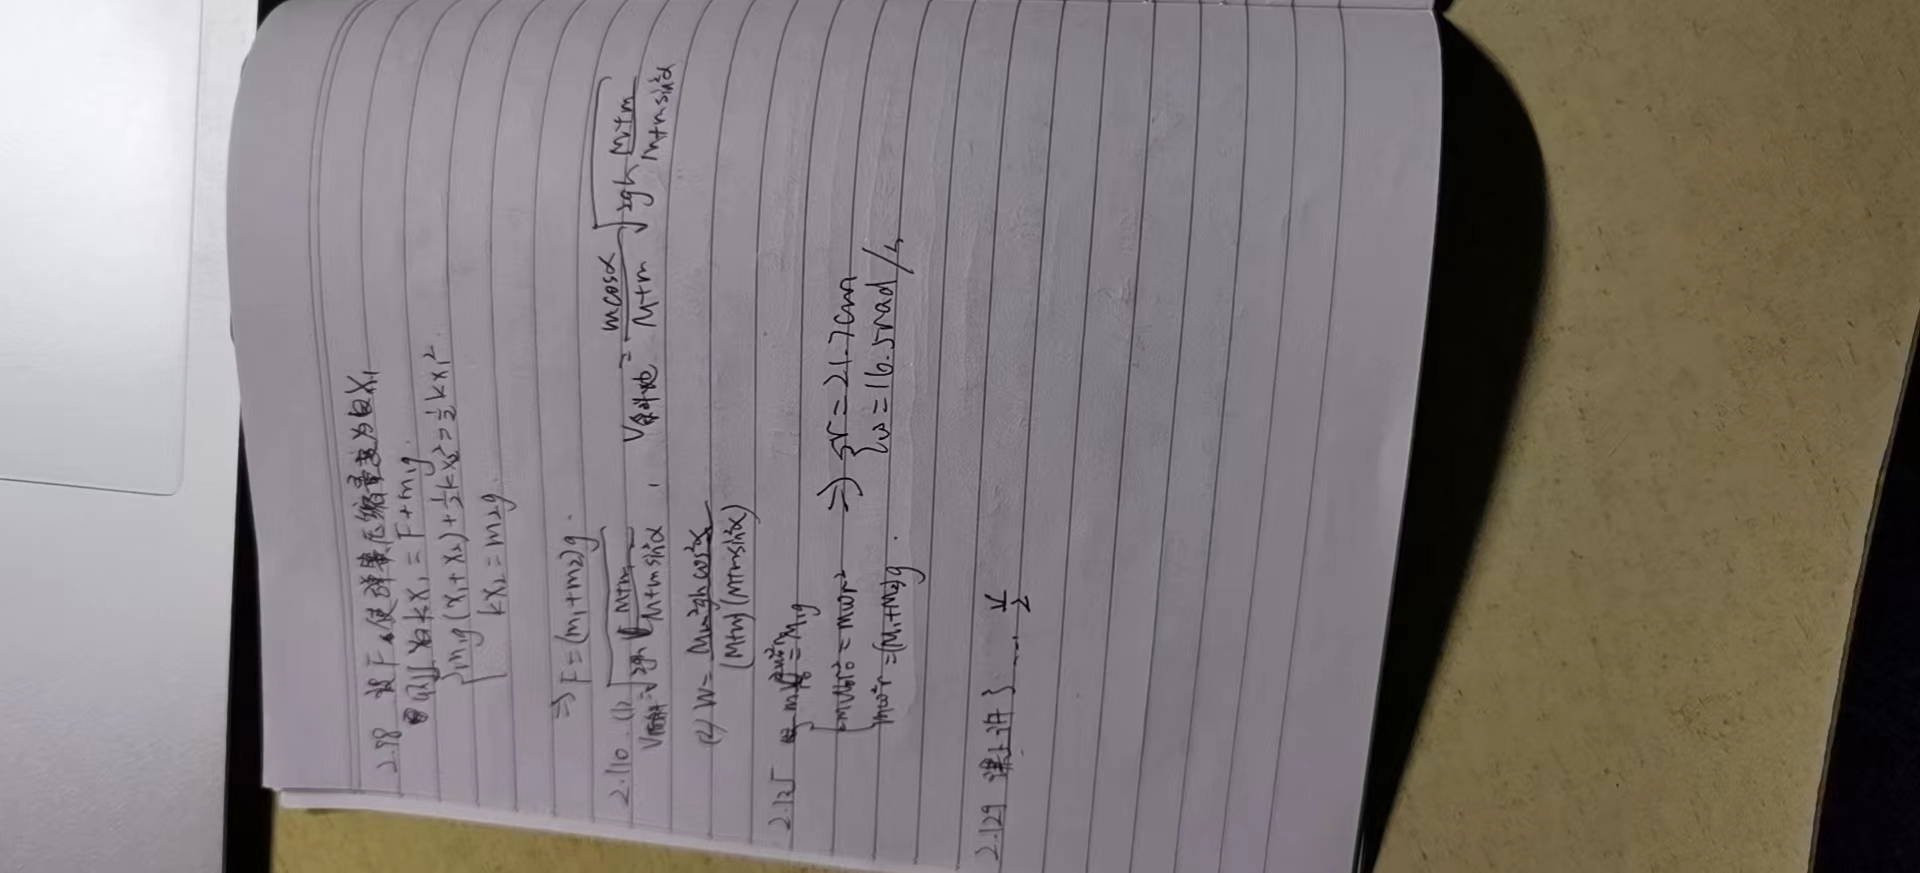 2.98 设F使弹簧压缩量为X₁
则 kx₁ = F+m₁g.
m₁g(x₁+x₂)+½kx₂²=½kx₁².
kx₂=m₂g.
⇒ F=(m₁+m₂)g.
2.110. (1)
V=√2gh √(M+m)/(M+msin²α) , V斜= mcosα/(M+m) √(2gh (M+m)/(M+msin²α))
(2) W= Mm²ghcos²α/((M+m)(M+msin²α))
2.125 = M₁g
mω₀r₀²=mωr² ⇒ { r=21.7cm
mω²r=(M₁+M₂)g. ω=16.5rad/s
2.129 课上讲了